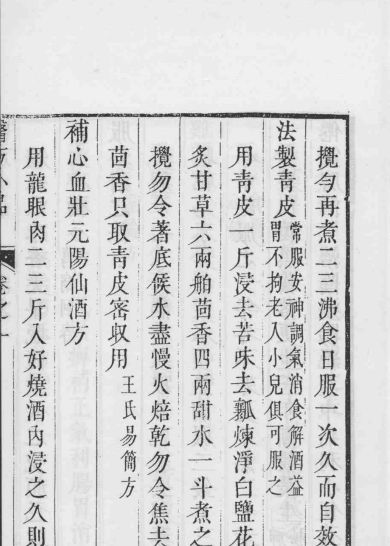 攪勻再煮二三沸食日服一次久而自效
法製青皮
常服安神調氣消食解酒益
胃不拘老人小兒俱可服之
用青皮一斤浸去苦味去瓤煉淨白鹽花
炙甘草六兩舶茴香四兩甜水一斗煮之
攪勿令著底候水盡慢火焙乾勿令焦去
茴香只取青皮宻収用
王氏易簡方
補心血壯元陽仙酒方
用龍眼肉二三斤入好燒酒內浸之久則